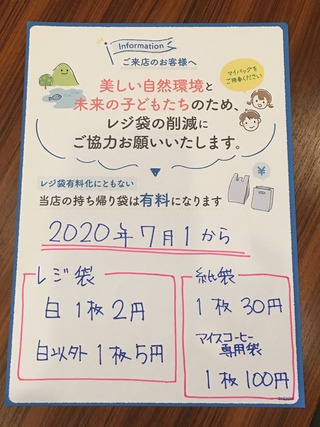 Information
ご来店のお客様へ
マイバッグを
ご持参ください
美しい自然環境と
未来の子どもたちのため、
レジ袋の削減に
ご協力お願いいたします。
レジ袋有料化にともない
当店の持ち帰り袋は有料になります
¥
2020年7月1から
レジ袋
白 1枚2円
白以外 1枚5円
紙袋
1枚30円
アイスコーヒー
専用袋
1枚100円